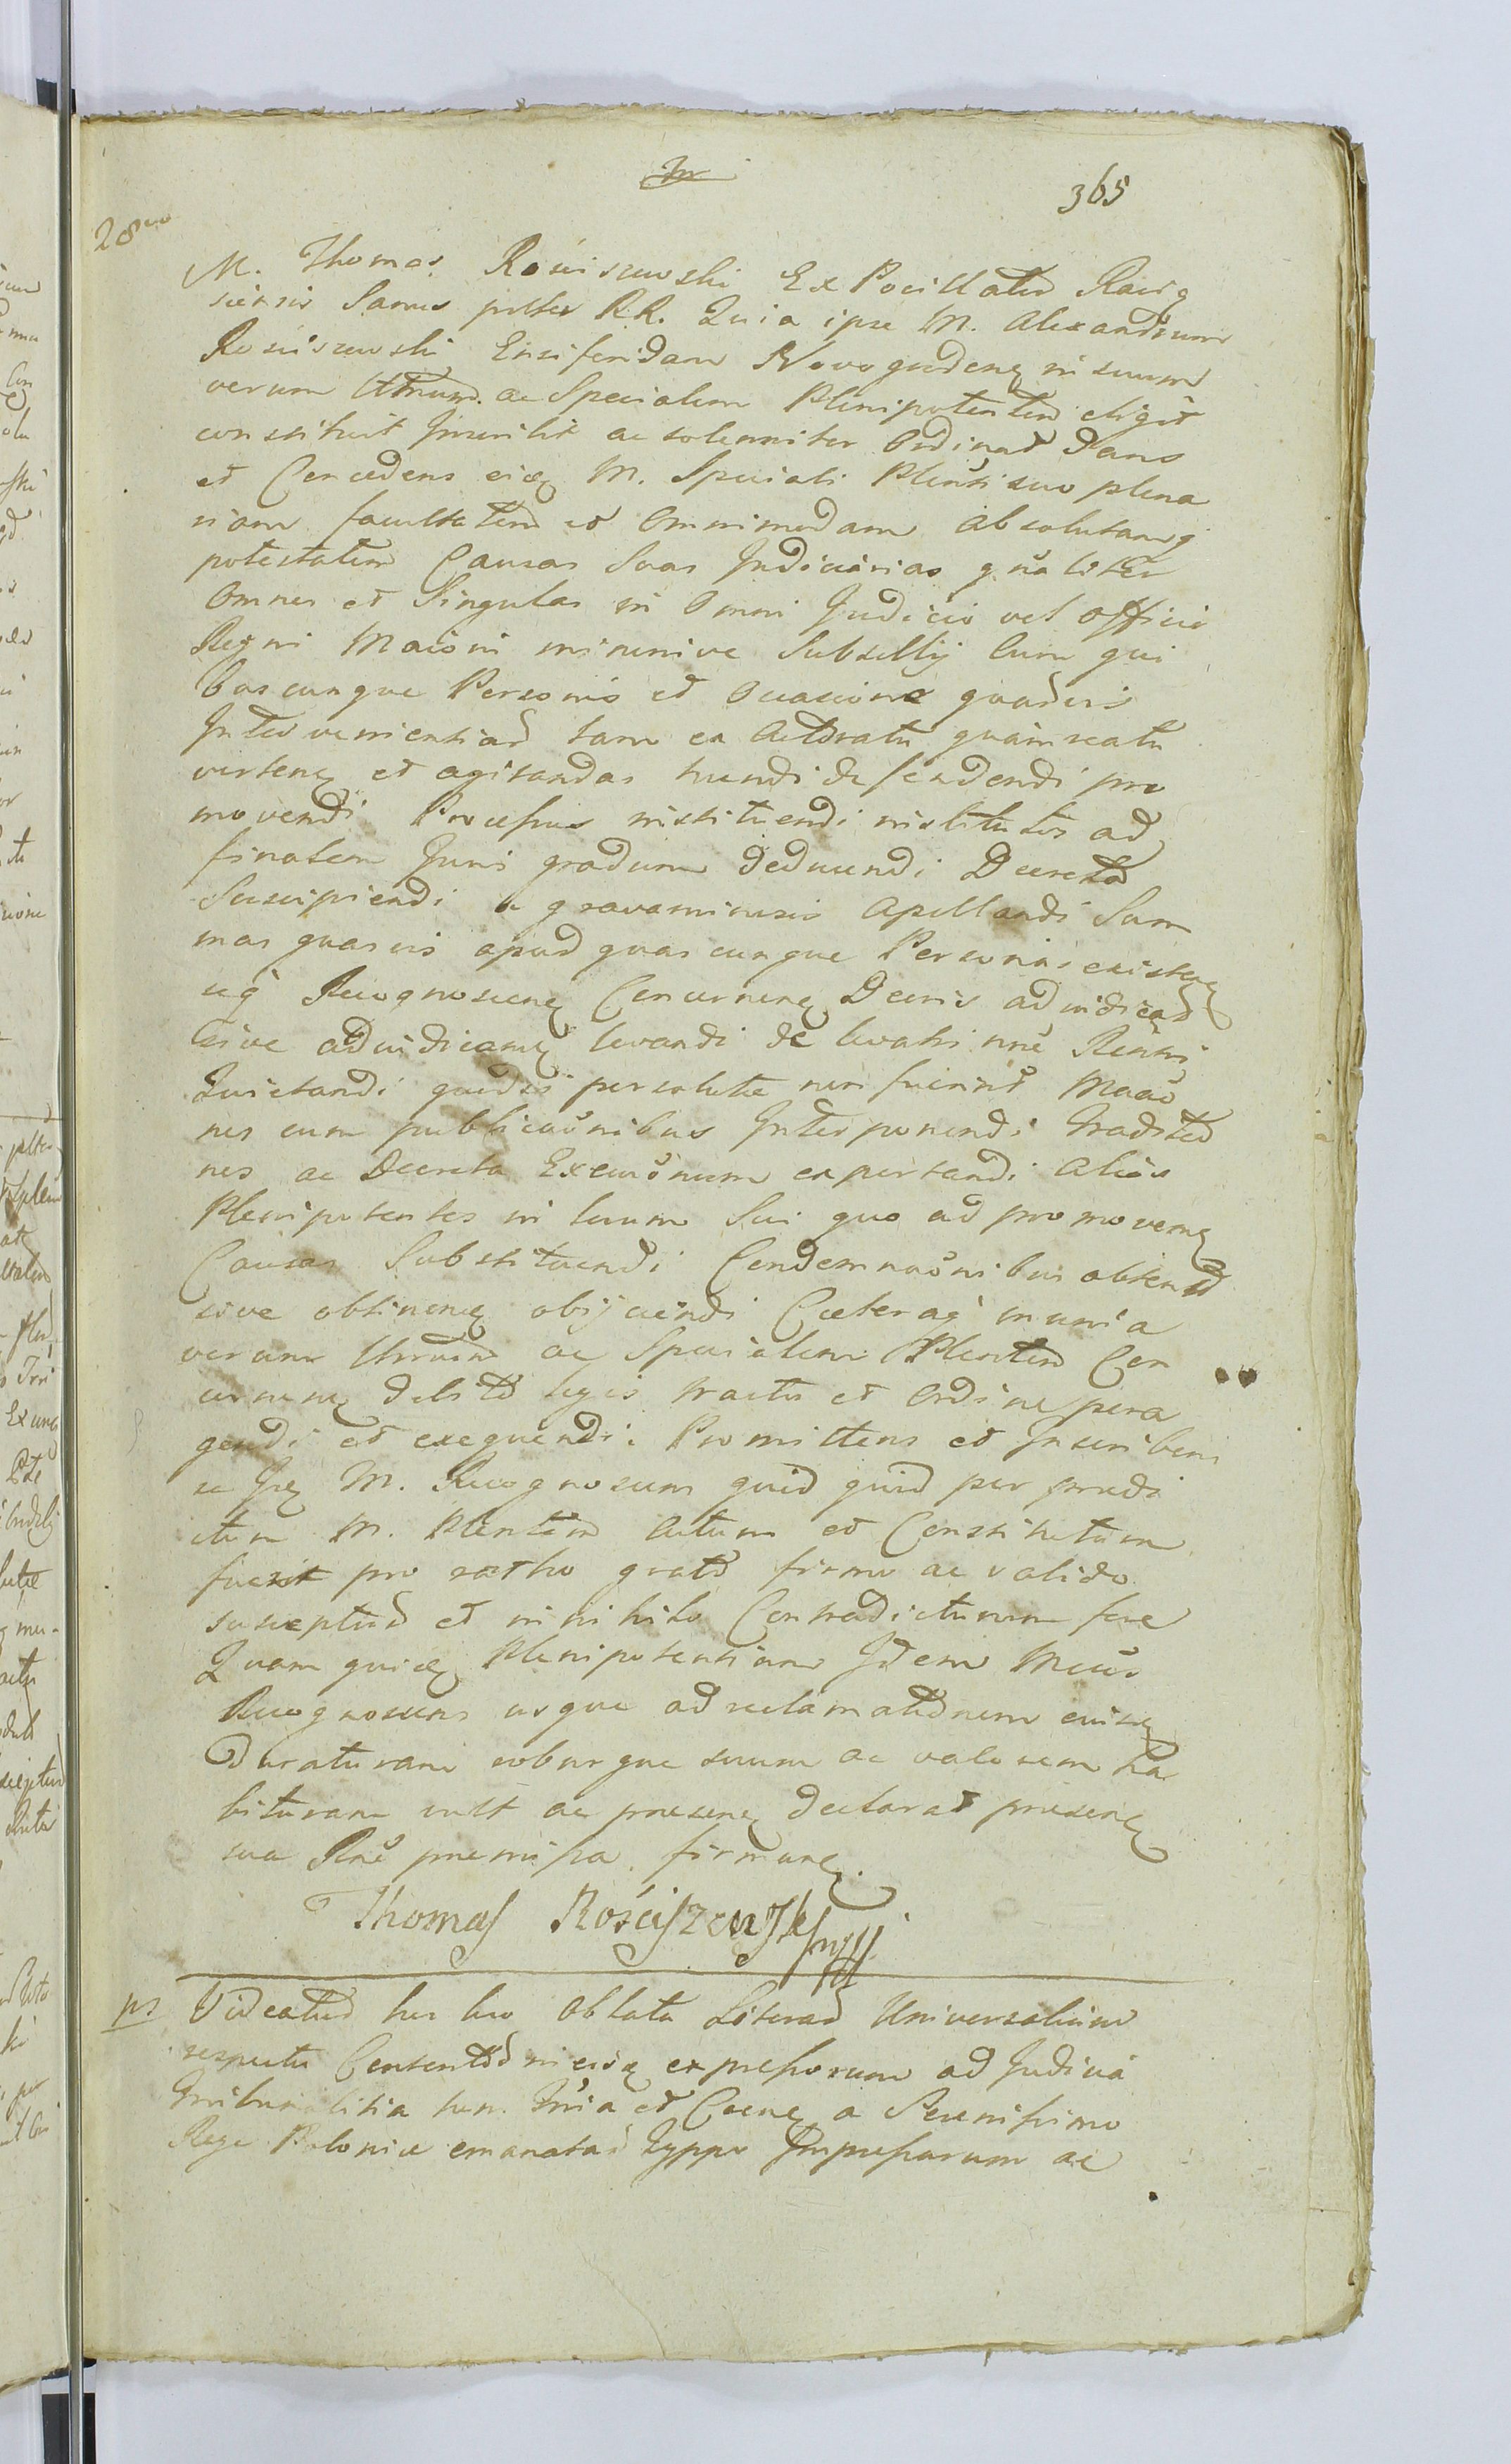 365
28vo
M. Thomas Rościszewski Ex Pocillator Racią
siensis Sanus pster RR. Quia ipse M. Alexandrum
Rościszewski Ensiferidam Novogrodenę in suum
verum Ltmum. ac Specialem Plenipotentem eligit
constituit Inscribit ac solemniter Ordinat Dans
et Concedens eidę M. Speciali Plenti suo plena
riam facultatem et Omnimodam Absolutamq
potestatem Causas Suas Judiciarias gnaliter
Omnes et Singulas in Omni Judicio vel officio
Regni Maiori minorive Subsellij Cum qui
buscunque Personis et Occasione quavis
Intervenientias tam ex Actoratu quam reatu
vertenę et agitandas tuendi defendendi pro
movendi Processus instituendi institutos ad
finalem Juris gradum deducendi Decreta
Suscipiendi a gravaminosis Apellandi Sum
mas quasvis apud quascunque Personas existenę
seq Recognoscenę Concernenę Decris adiudicat
sive adiudicanę levandi de levatis nne Rentis
Quietandi quodsi persolutae non fuerint Maao
nes cum publicaonibus Interponendi Traditio
nes ac Decreta Execuonum exportandi Alios
Plenipotentes in locum Sui quo ad promovenę
Causas Substituendi Condemnaonibus obtent
sive obtinenę obijciendi Caeteraq munia
verum Ltmum ac Specialem Plentem Con
cernenę debito legis tractu et Ordine pera
gendi et exequendi. Promittens et Inscribens
se Idę M. Recognoscens quid quid per praedi
ctum M. Plentem Actum et Constitutum
fuerit pro ratho grato firmo ac valido
suscepturum et in nihilo Contradicturum fore
Quam quidę Plenipotentiam Idem Mcus
Recognoscens usque ad reclamationem eiusdę
Duraturam roburque suum ac valorem ha
bituram vult ac praesenę declarat praesenę
sua Rne praemissa firmanę.
Thomas Rościszewski mpp
ps Videatur hoc loco Oblata Literar Universalium
respectu Consentio in eisdę expressorum ad Judicia
Tribunalitia ten. Tria et Coenę a Serenissimo
Rege Poloniae emanatar Typpo Impressarum ac